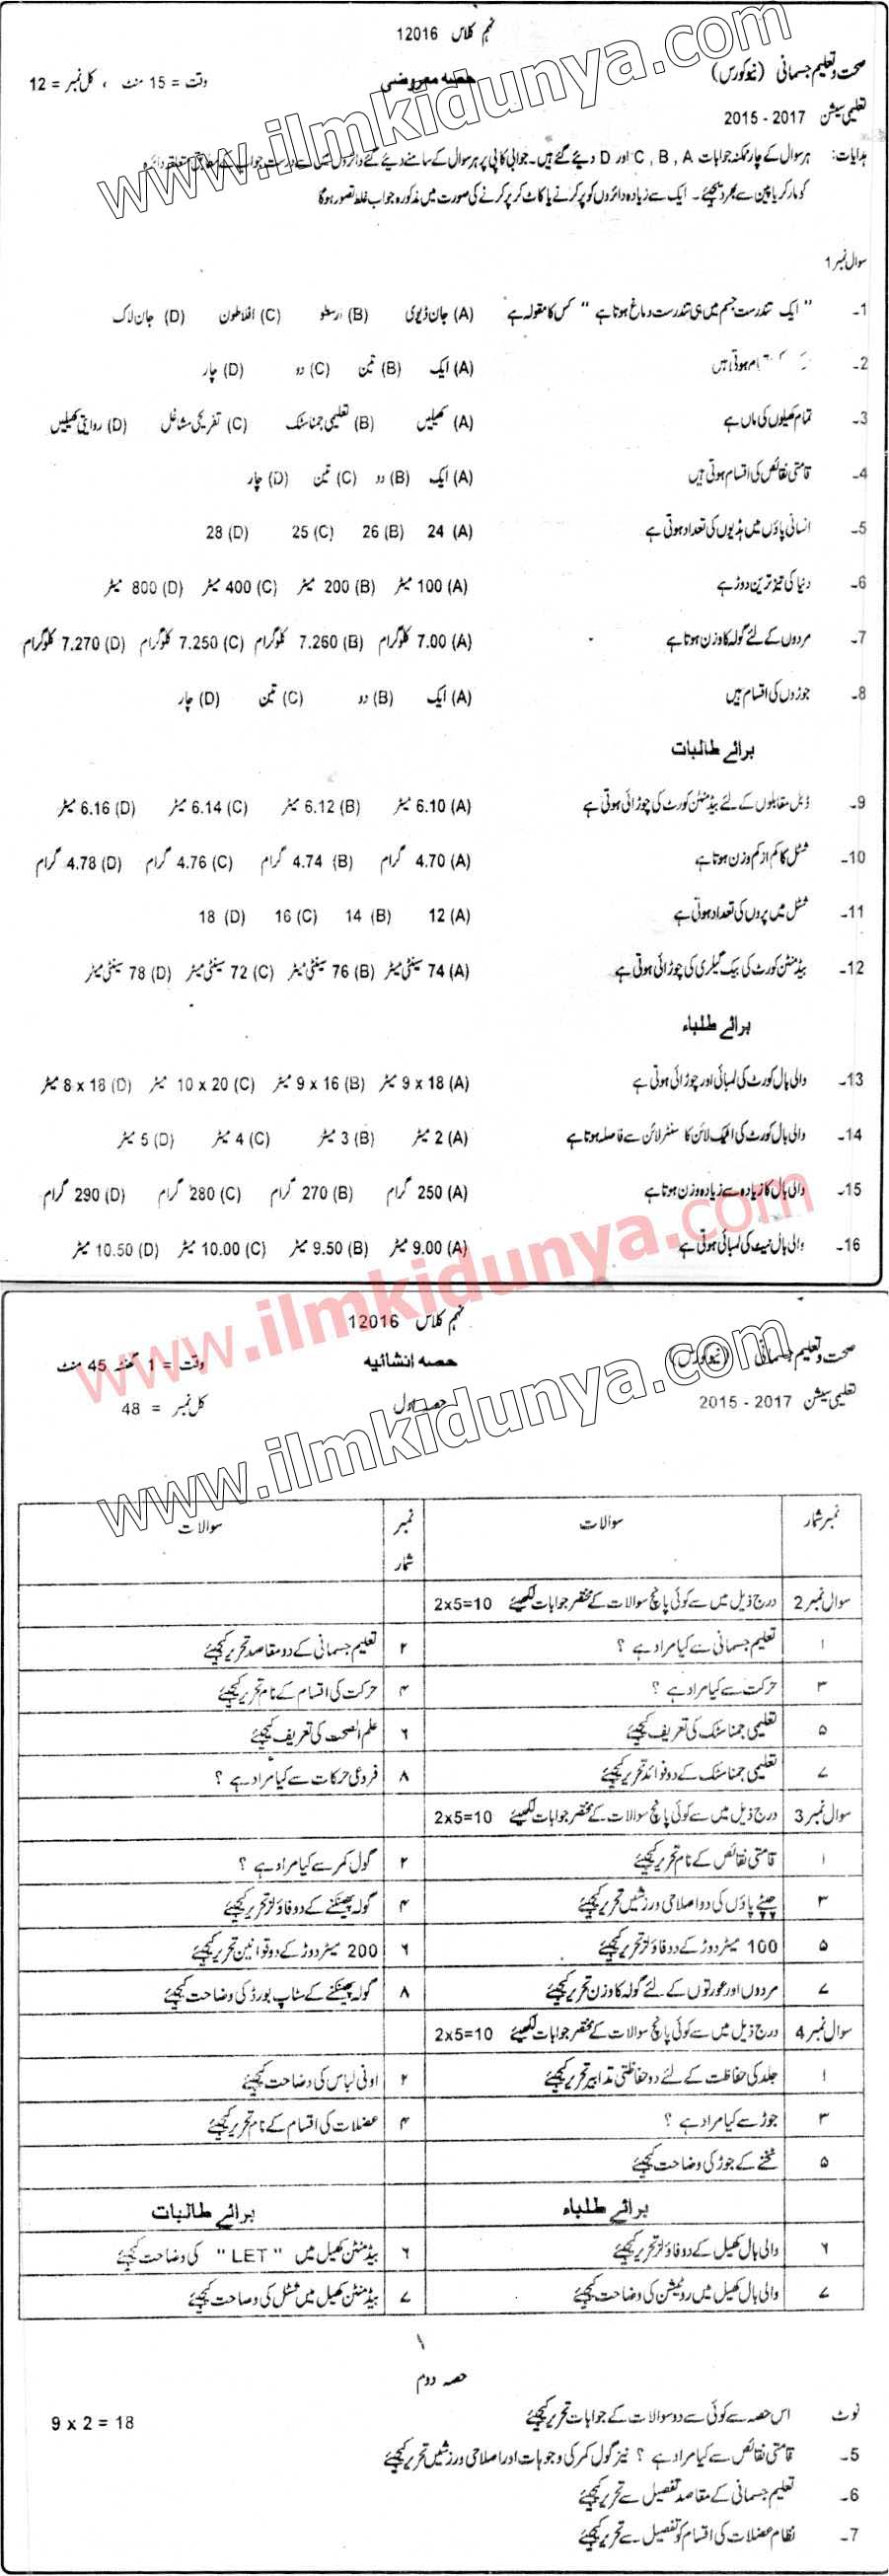 نہم کلاس 12016
صحت و تعلیم جسمانی (نیو کورس) حصہ معروضی وقت = 15 منٹ ، کل نمبر = 12
تعلیمی سیشن 2015 - 2017
ہدایات: ہر سوال کے چار ممکنہ جوابات A , B , C اور D دیئے گئے ہیں۔ جوابی کاپی پر ہر سوال کے سامنے دیئے گئے دائروں میں سے درست جواب کے مطابق متعلقہ دائرہ
کو مارکر یا پین سے بھر دیجئیے۔ ایک سے زیادہ دائروں کو پُر کرنے یا کاٹ کر پُر کرنے کی صورت میں مذکورہ جواب غلط تصور ہو گا
www.ilmkidunya.com
سوال نمبر 1
1- " ایک تندرست جسم میں ہی تندرست دماغ ہوتا ہے " کس کا مقولہ ہے (A) جان ڈیوی (B) ارسطو (C) افلاطون (D) جان لاک
2- ہوتی ہیں (A) ایک (B) تین (C) دو (D) چار
3- تمام کھیلوں کی ماں ہے (A) کھیلیں (B) تعلیمی جمناسٹک (C) تفریحی مشاغل (D) روایتی کھیلیں
4- قامتی نقائص کی اقسام ہوتی ہیں (A) ایک (B) دو (C) تین (D) چار
5- انسانی پاؤں میں ہڈیوں کی تعداد ہوتی ہے (A) 24 (B) 26 (C) 25 (D) 28
6- دنیا کی تیز ترین دوڑ ہے (A) 100 میٹر (B) 200 میٹر (C) 400 میٹر (D) 800 میٹر
7- مردوں کے لئے گولہ کا وزن ہوتا ہے (A) 7.00 کلوگرام (B) 7.260 کلوگرام (C) 7.250 کلوگرام (D) 7.270 کلوگرام
8- جوڑوں کی اقسام ہیں (A) ایک (B) دو (C) تین (D) چار
برائے طالبات
9- ڈبل مقابلوں کے لئے بیڈمنٹن کورٹ کی چوڑائی ہوتی ہے (A) 6.10 میٹر (B) 6.12 میٹر (C) 6.14 میٹر (D) 6.16 میٹر
10- شٹل کا کم از کم وزن ہوتا ہے (A) 4.70 گرام (B) 4.74 گرام (C) 4.76 گرام (D) 4.78 گرام
11- شٹل میں پروں کی تعداد ہوتی ہے (A) 12 (B) 14 (C) 16 (D) 18
12- بیڈمنٹن کورٹ کی بیک گیلری کی چوڑائی ہوتی ہے (A) 74 سینٹی میٹر (B) 76 سینٹی میٹر (C) 72 سینٹی میٹر (D) 78 سینٹی میٹر
برائے طلباء
13- والی بال کورٹ کی لمبائی اور چوڑائی ہوتی ہے (A) 9 x 18 میٹر (B) 9 x 16 میٹر (C) 10 x 20 میٹر (D) 8 x 18 میٹر
14- والی بال کورٹ کی اٹیک لائن کا سنٹر لائن سے فاصلہ ہوتا ہے (A) 2 میٹر (B) 3 میٹر (C) 4 میٹر (D) 5 میٹر
15- والی بال کا زیادہ سے زیادہ وزن ہوتا ہے (A) 250 گرام (B) 270 گرام (C) 280 گرام (D) 290 گرام
16- والی بال نیٹ کی لمبائی ہوتی ہے (A) 9.00 میٹر (B) 9.50 میٹر (C) 10.00 میٹر (D) 10.50 میٹر
www.ilmkidunya.com
نہم کلاس 12016
صحت و تعلیم جسمانی (نیو کورس) حصہ انشائیہ وقت = 1 گھنٹہ 45 منٹ
تعلیمی سیشن 2015 - 2017 حصہ اول کل نمبر = 48
www.ilmkidunya.com
نمبر شمار سوالات نمبر شمار سوالات
سوال نمبر 2 درج ذیل میں سے کوئی پانچ سوالات کے مختصر جوابات لکھیئے 2x5=10
۱ تعلیم جسمانی سے کیا مراد ہے ؟ ۲ تعلیم جسمانی کے دو مقاصد تحریر کیجیئے
۳ حرکت سے کیا مراد ہے ؟ ۴ حرکت کی اقسام کے نام تحریر کیجیئے
۵ تعلیمی جمناسٹک کی تعریف کیجیئے ۶ علم الصحت کی تعریف کیجیئے
۷ تعلیمی جمناسٹک کے دو فوائد تحریر کیجیئے ۸ فروعی حرکات سے کیا مراد ہے ؟
سوال نمبر 3 درج ذیل میں سے کوئی پانچ سوالات کے مختصر جوابات لکھیئے 2x5=10
۱ قامتی نقائص کے نام تحریر کیجیئے ۲ گول کمر سے کیا مراد ہے ؟
۳ چپٹے پاؤں کی دو اصلاحی ورزشیں تحریر کیجیئے ۴ گولہ پھینکنے کے دو فاؤلز تحریر کیجیئے
۵ 100 میٹر دوڑ کے دو فاؤلز تحریر کیجیئے ۶ 200 میٹر دوڑ کے دو قوانین تحریر کیجیئے
۷ مردوں اور عورتوں کے لئے گولہ کا وزن تحریر کیجیئے ۸ گولہ پھینکنے کے سٹاپ بورڈ کی وضاحت کیجیئے
سوال نمبر 4 درج ذیل میں سے کوئی پانچ سوالات کے مختصر جوابات لکھیئے 2x5=10
۱ جلد کی حفاظت کے لئے دو حفاظتی تدابیر تحریر کیجیئے ۲ اونی لباس کی وضاحت کیجیئے
۳ جوڑ سے کیا مراد ہے ؟ ۴ عضلات کی اقسام کے نام تحریر کیجیئے
۵ ٹخنے کے جوڑ کی وضاحت کیجیئے
برائے طلباء برائے طالبات
۶ والی بال کھیل کے دو فاؤلز تحریر کیجیئے ۶ بیڈمنٹن کھیل میں " LET " کی وضاحت کیجیئے
۷ والی بال کھیل میں روٹیشن کی وضاحت کیجیئے ۷ بیڈمنٹن کھیل میں شٹل کی وضاحت کیجیئے
حصہ دوم
نوٹ اس حصہ سے کوئی سے دو سوالات کے جوابات تحریر کیجیئے 9 x 2 = 18
5- قامتی نقائص سے کیا مراد ہے ؟ نیز گول کمر کی وجوہات اور اصلاحی ورزشیں تحریر کیجیئے
6- تعلیم جسمانی کے مقاصد تفصیل سے تحریر کیجیئے
7- نظام عضلات کی اقسام کو تفصیل سے تحریر کیجیئے